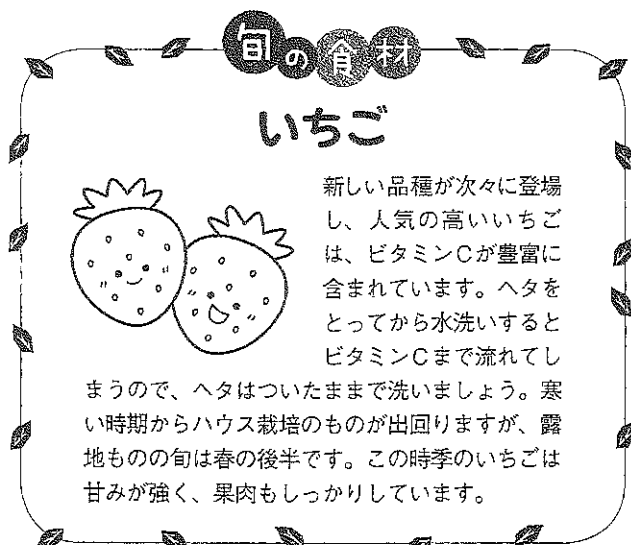 旬の食材
いちご
新しい品種が次々に登場
し、人気の高いいちご
は、ビタミンCが豊富に
含まれています。ヘタを
とってから水洗いすると
ビタミンCまで流れてし
まうので、ヘタはついたままで洗いましょう。寒
い時期からハウス栽培のものが出回りますが、露
地ものの旬は春の後半です。この時季のいちごは
甘みが強く、果肉もしっかりしています。